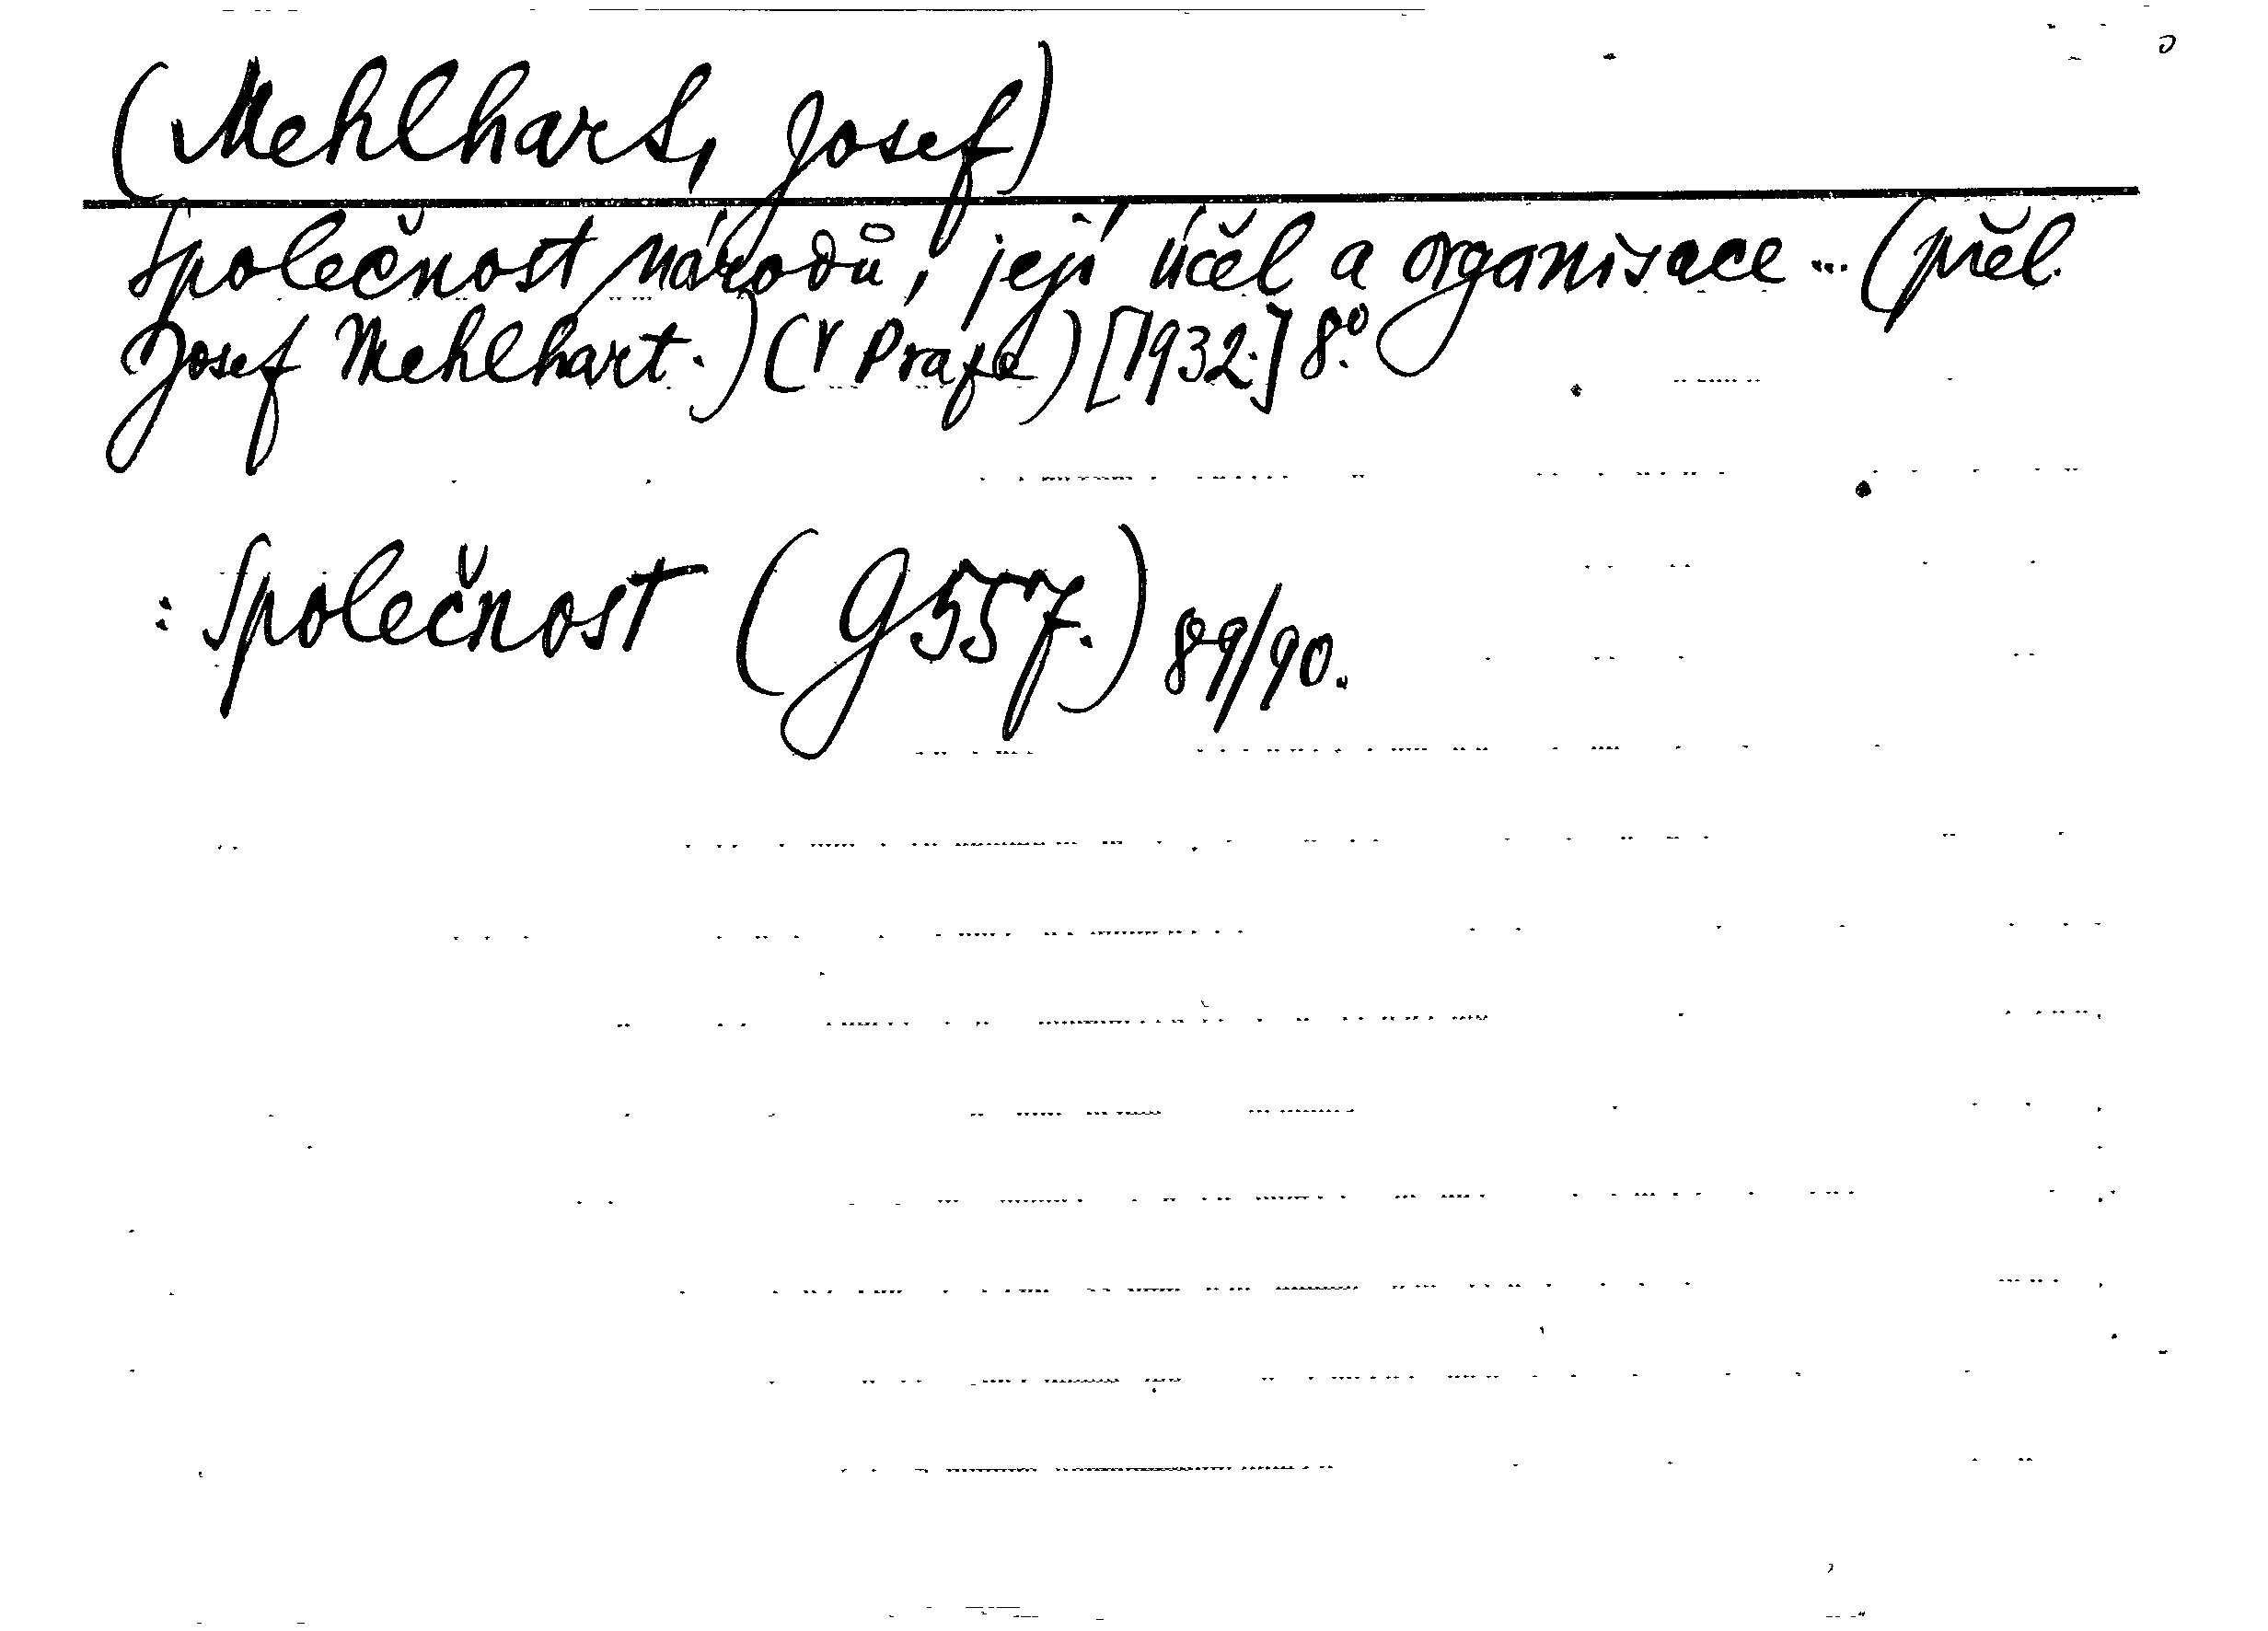 (Mehlhart, Josef)
Společnost národů, její účel a organisace ... (přel.
Josef Mehlhart.) (V Praze) [1932.] 8°.
: Společnost (G557.) 89/90.